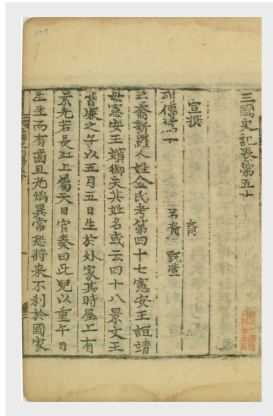 三國史記卷第五十
宣撰
列傳第十 弓裔 甄萱
弓裔新羅人姓金氏考第四十七憲安王誼靖
母憲安王嬪御失其姓名或云四十八景文王
膺廉之子以五月五日生於外家其時屋上有
素光若長虹上屬天日官奏曰此兒以重午日
生生而有齒且光熖異常恐將來不利於國家